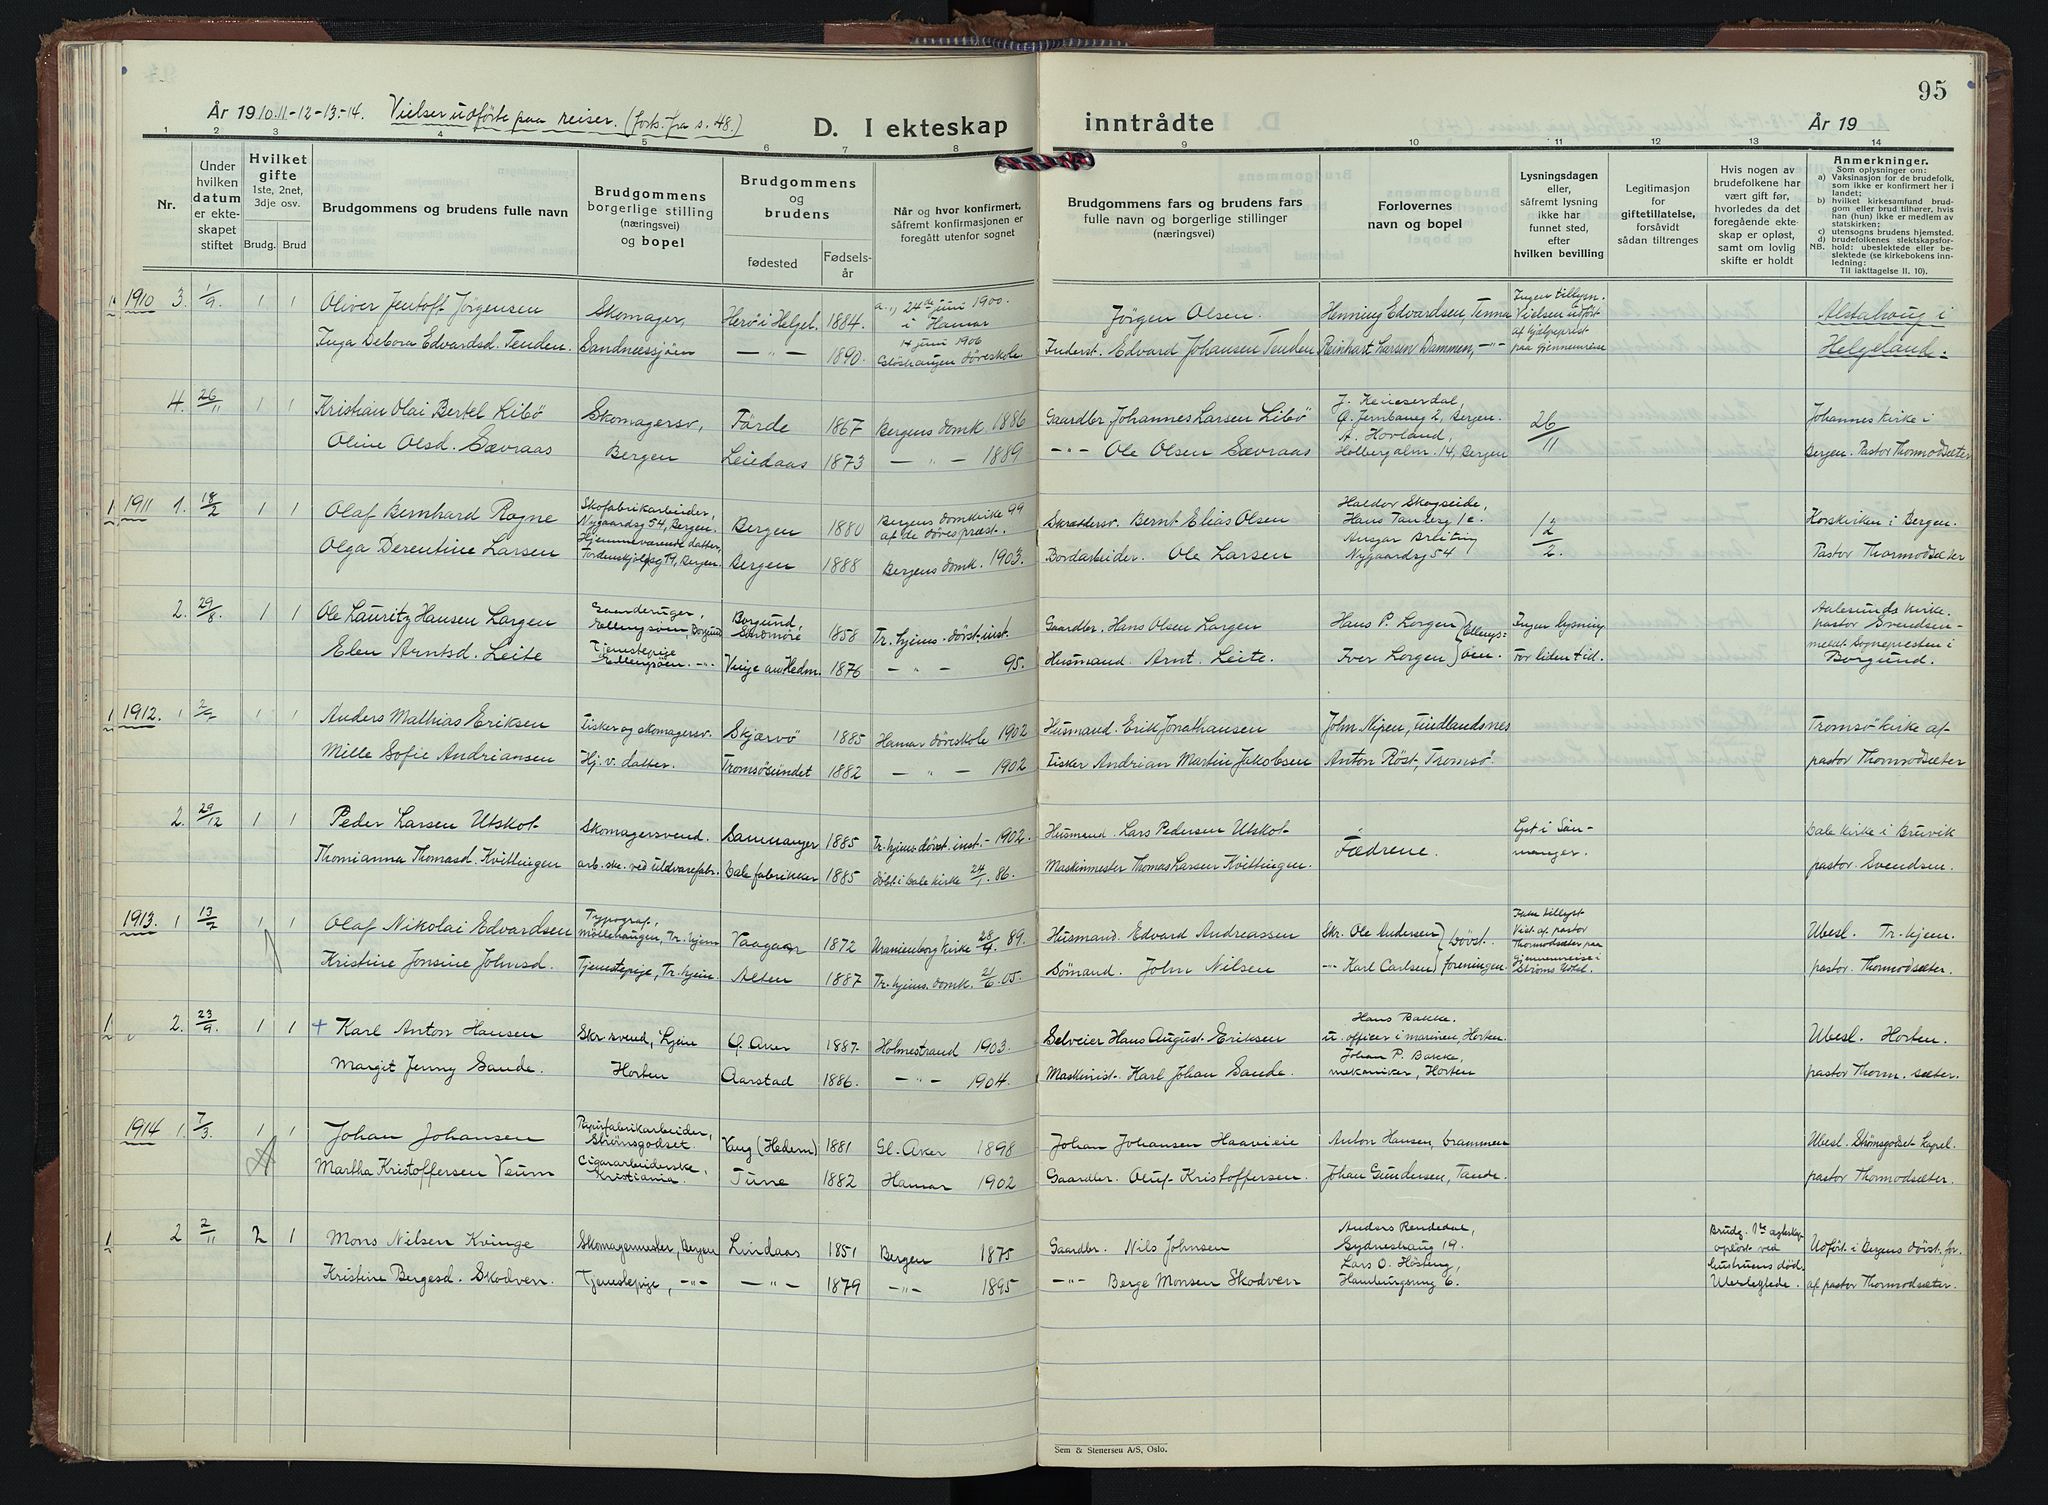 95
År 1910.11-12-13-14. Vielser udførte paa reiser. (forts. fra s. 48.)
D. I ekteskap inntrådte
År 19
1 2 3 4 5 6 7 8 9 10 11 12 13 14
Nr.
Under hvilken datum er ekteskapet stiftet
Hvilket gifte 1ste, 2net, 3dje osv.
Brudg. Brud
Brudgommens og brudens fulle navn
Brudgommens borgerlige stilling (næringsvei) og bopel
Brudgommens og brudens
fødested
Fødselsår
Når og hvor konfirmert, såfremt konfirmasjonen er foregått utenfor sognet
Brudgommens fars og brudens fars fulle navn og borgerlige stillinger (næringsvei)
Forlovernes navn og bopel
Lysningsdagen eller, såfremt lysning ikke har funnet sted, efter hvilken bevilling
Legitimasjon for giftetillatelse, forsåvidt sådan tiltrenges
Hvis nogen av brudefolkene har vært gift før, hvorledes da det foregående ekteskap er opløst, samt om lovlig skifte er holdt
Anmerkninger.
Som oplysninger om:
a) Vaksinasjon for de brudefolk, som ikke er konfirmert her i landet;
b) hvilket kirkesamfund brudgom eller brud tilhører, hvis han (hun) ikke er medlem av statskirken;
c) utensogns brudens hjemsted.
d) brudefolkenes slektskapsforhold: ubeslektede eller beslektede (se kirkebokens innledning:
NB. Til iakttagelse II. 10).
1910 3. 1/9. 1 1 Oliver Jentoft Jørgensen Skomager, Herø i Helgel. 1884. 24de juni 1900. i Hamar Jørgen Olsen. Henning Edvardsen, Ingen tillysn. Vielsen udført Alstahoug i
Inga Debora Edvardsd. Tenden. Sandnessjøen —"— 1890. 14 juni 1906 døveskole Inderst. Edvard Johansen Tenden Reinhart Larsen Dammen, -"- af hjælpeprest paa gjennemreise Helgeland.
4. 26/11 1 1 Kristian Olai Bertel Libø Skomagersv, Førde 1867 Bergens domk. 1886 Gaardbr. Johannes Larsen Libø 2, Bergen. 26/11 Johannes kirke i
Oline Olsd. Sævraas Bergen 1873 —"— 1889 -"- Ole Olsen Sævraas A. Hovland, Holbergalm. 14, Bergen Bergen. Pastor Thormodsæter
1911 1. 18/2 1 1 Olaf Bernhard Rogne Skofabrikarbeider, Nygaardsg 54, Bergen. Bergen 1880 Bergens domkirke 99 af de døves præst. Skræddersv. Bernt Elias Olsen Haldor Skogseide, Hans Tanksg 1c. 12/2. Korskirken i Bergen.
Olga Derentine Larsen Hjemmeværende datter, Bergen. Bergen 1888 Bergens domk. 1903. Bordarbeider. Ole Larsen Ansgar Nygaardsg 54 Pastor Thormodsæter
2. 29/8. 1 1 Ole Lauritz Hansen Lorgen Ellengsøen, Borgund Borgund, Søndmøre 1858 Tr. hjems. døvst. inst. Gaardbr. Hans Olsen Lorgen Hans P. Lorgen Ingen lysning Aalesunds kirke. pastor Svendsen
Elen Arntsd. Leite Tjenestepige Ellengsøen. -"- 1876 —"— 95. Husmand. Arnt Leite. Iver Lorgen } Ellengsøen. For liden tid. meldt Sognepresten i Borgund.
1912. 1 1 1 Anders Mathias Eriksen Fisker og skomagersv. Skjærvø 1885 Hamar døveskole 1902 Husmand. Erik Jonathansen John Nipen, Tromsø kirke af
Mille Sofie Andriansen Hj. v. datter. Tromsøsundet 1882 —"— 1902 Fisker Andrian Martin Jakobsen Anton Røst, Tromsø pastor Thormodsæter
2. 29/12 1 1 Peder Larsen Utskot Skomagersvend. Samnanger 1885 Tr. hjems døvst. inst. - 1902. Husmand. Lars Pedersen Utskot Fædrene. Lyst i Samnanger. Dale kirke i Bruvik
Thomianna Thomasd. Kvittingen arb. ske. ved uldvarefabr. Dale fabrikker 1885 døbt i Dale kirke 24/1. 86. Maskinmester Thomas Larsen Kvittingen. pastor. Svendsen.
1913. 1 13/2 1 1 Olaf Nikolai Edvardsen Typograf, Møllehaugen, Tr. hjem Vaagan 1872 Uranienborg kirke 28/4. 89. Husmand. Edvard Andreassen Skr. Ole Andersen } Døvst. Vist af pastor Ubesl. Tr. hjem.
Kristine Jonsine Johnsd. Tjenestepige, Tr. hjem. Alten 1887 Tr. hjems. domk. 21/6. 05. Sømand. John Nilsen -"- Karl Carlsen foreningen. Thormodsæter paa gjennemreise i Strøms Hotel. pastor. Thormodsæter.
2. 23/9. 1 1 + Karl Anton Hansen Skr. svend, Ljein Ø. Aker 1887. Holmestrand 1903. Selveier Hans August Eriksen Hans Bakke. u. officer i marinen, Horten. Ubesl. Horten.
Margit Jenny Sande. Horten Aarstad 1886. —"— 1904. Maskinist. Karl Johan Sande. Johan P. Bakke, mekaniker, Horten pastor Thorm. sæter.
1914 1. 7/3. 1 1 Johan Johansen Papirfabrikarbeider, Strømsgodset Vang (Hedem) 1881 Gl. Aker 1898 Johan Johansen Haavieie Anton Hansen, Drammen Ubesl. Strømsgodset kapel.
Martha Kristoffersen Veum Cigararbeiderske, Kristiania. Tune 1882 Hamar 1902 Gaardbr. Oluf Kristoffersen. Johan Gundersen, Tande. pastor Thormodsæter.
2 2/11 2 1 Mons Nilsen Kvinge Skomagermester, Bergen Lindaas 1851 Bergen 1875 Gaardbr. Nils Johnsen Anders Rendedal, Sydneshaug 19. Brudg. 1ste opløst ved hustruens død. Udført i Bergens døvst. for.
Kristine Bergesd. Skodven. Tjenestepige, -"- —"— 1879 —"— 1895 -"- Berge Monsen Skodven Lars O. Høsteng, Hamburgsmug 6. Ubeslegtede. af pastor Thormodsæter.
Sem & Stenersen A/S, Oslo.